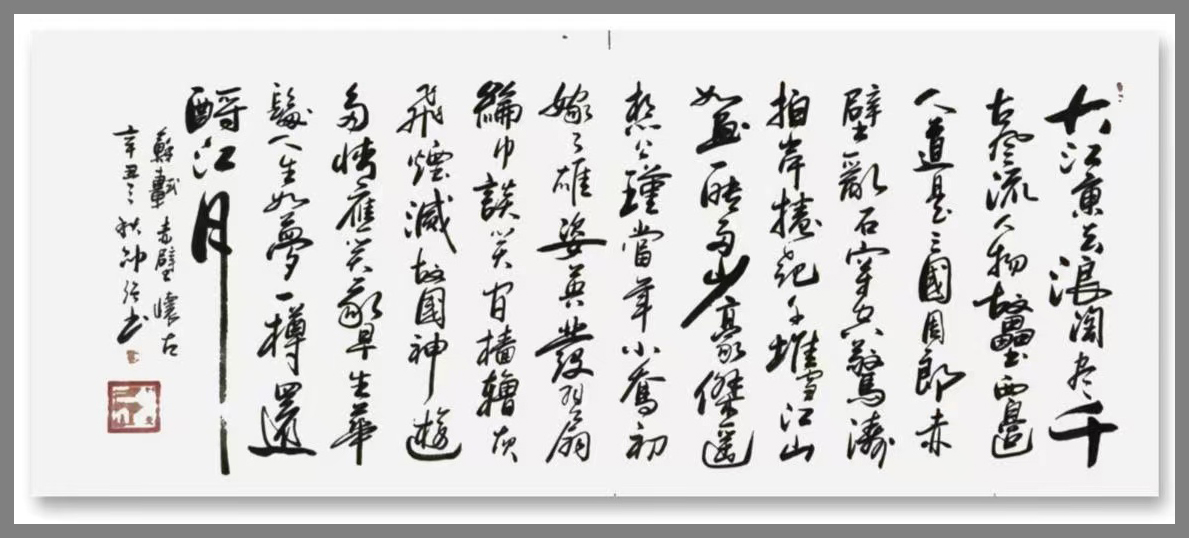 大江東去浪淘尽千
古風流人物故壘西邊
人道是三國周郎赤
壁亂石穿空驚濤
拍岸捲起千堆雪江山
如畫一時多少豪傑遙
想公瑾當年小喬初
嫁了雄姿英發羽扇
綸巾談笑間檣櫓灰
飛煙滅故國神遊
多情應笑我早生華
髮人生如夢一樽還
酹江月
蘇軾赤壁懷古
辛丑之秋書